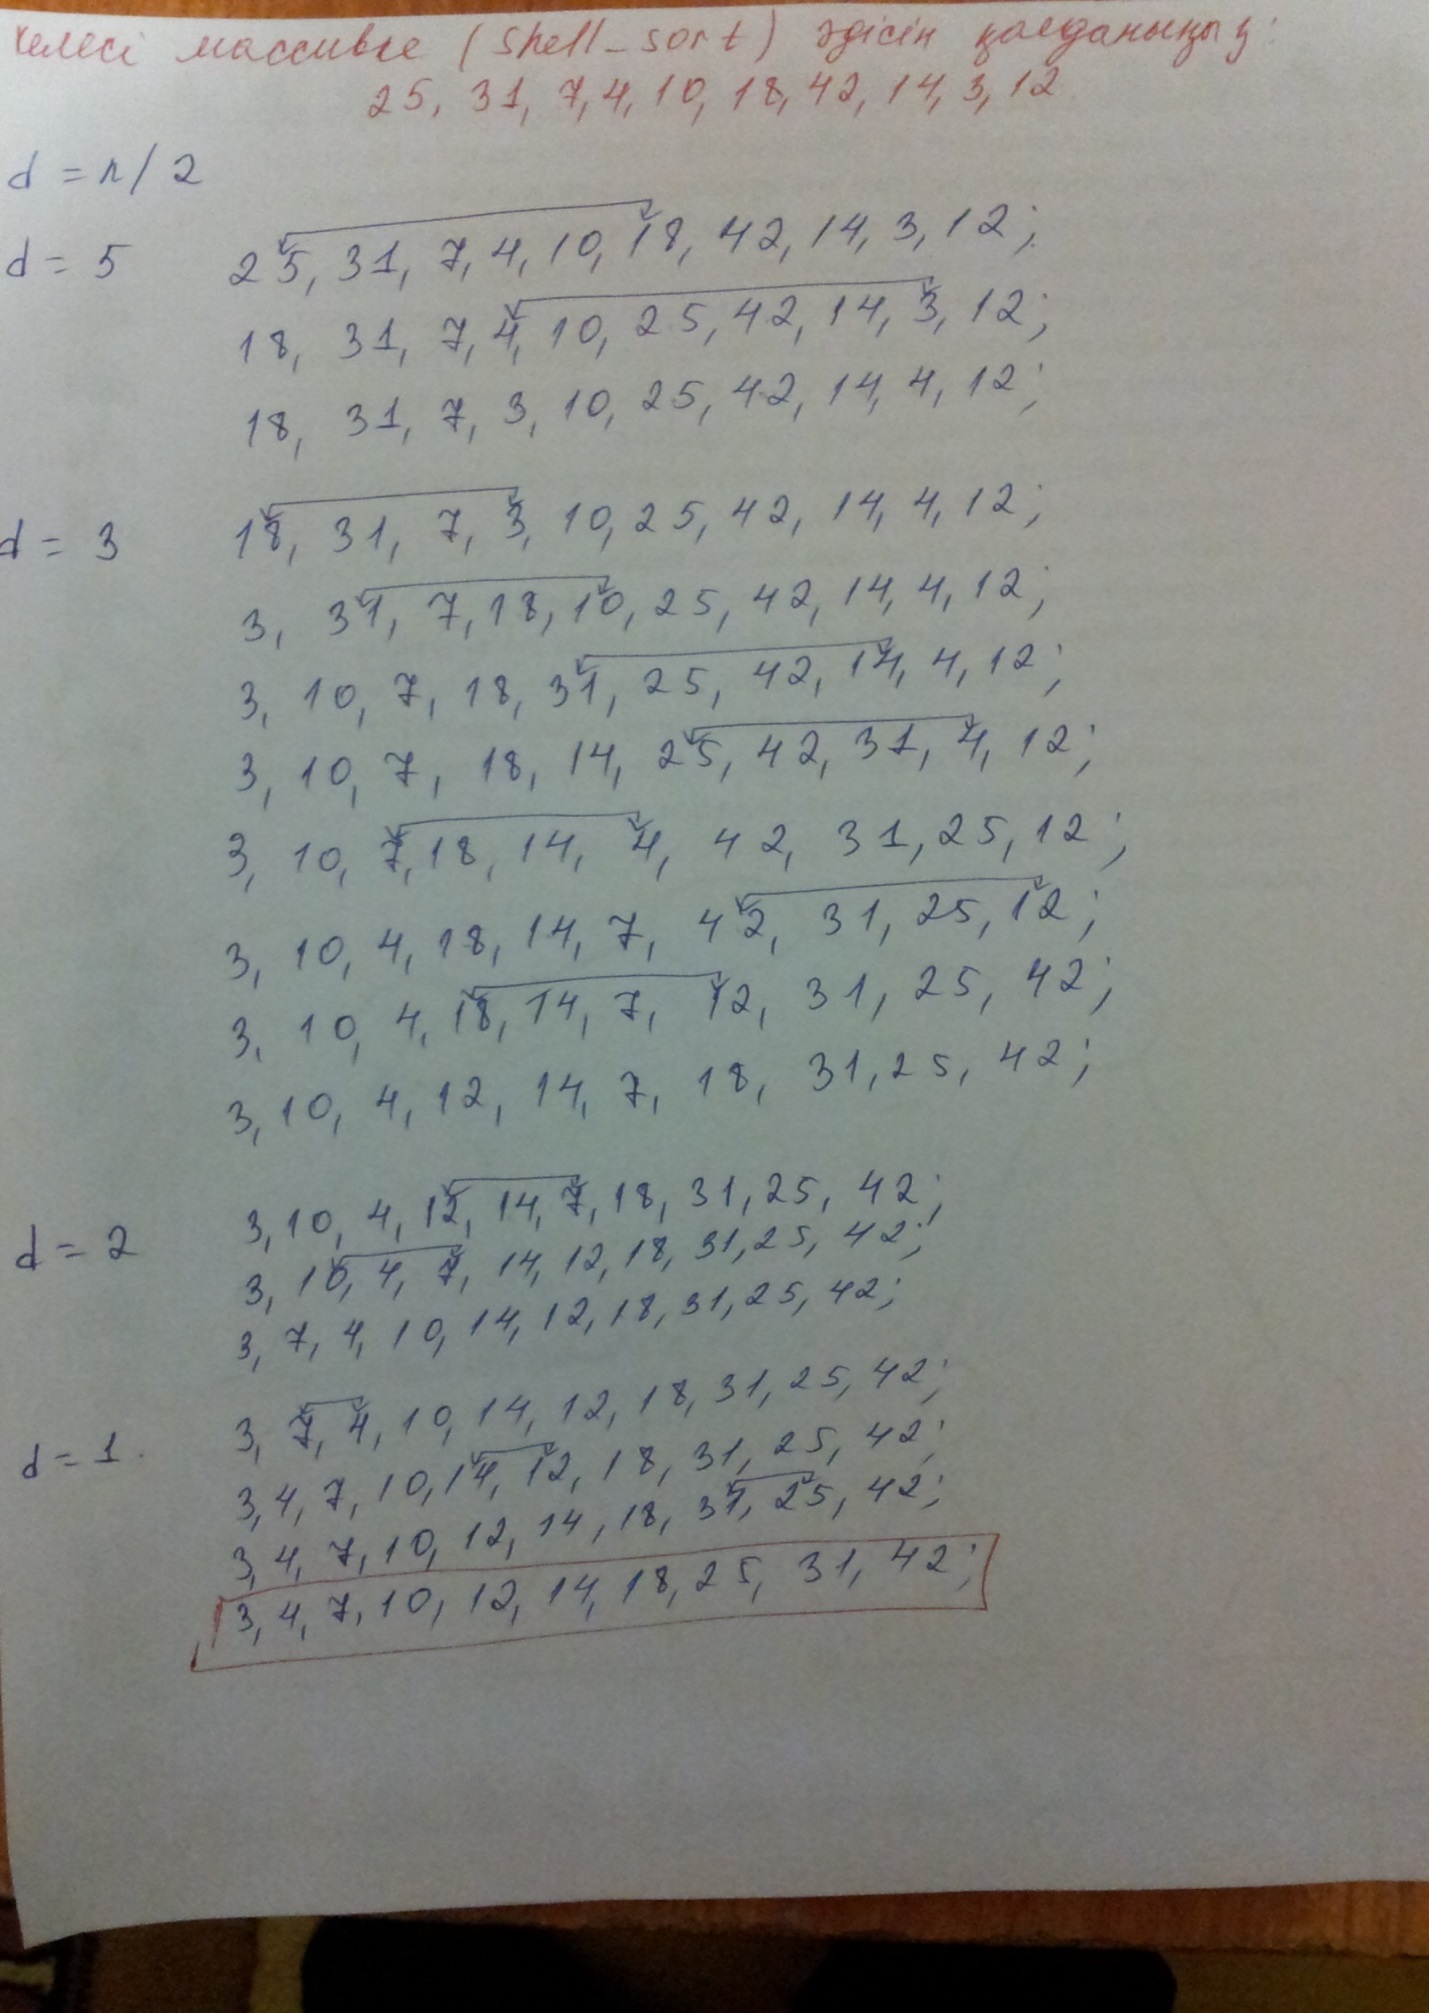 келесі массивке (Shell_sort) әдісін қолданыңыз:
25, 31, 7, 4, 10, 18, 42, 14, 3, 12
d = n/2
d = 5 25, 31, 7, 4, 10, 18, 42, 14, 3, 12;
18, 31, 7, 4, 10, 25, 42, 14, 3, 12;
18, 31, 7, 3, 10, 25, 42, 14, 4, 12;
d = 3 18, 31, 7, 3, 10, 25, 42, 14, 4, 12;
3, 31, 7, 18, 10, 25, 42, 14, 4, 12;
3, 10, 7, 18, 31, 25, 42, 14, 4, 12;
3, 10, 7, 18, 14, 25, 42, 31, 4, 12;
3, 10, 7, 18, 14, 4, 42, 31, 25, 12;
3, 10, 4, 18, 14, 7, 42, 31, 25, 12;
3, 10, 4, 18, 14, 7, 12, 31, 25, 42;
3, 10, 4, 12, 14, 7, 18, 31, 25, 42;
d = 2 3, 10, 4, 12, 14, 7, 18, 31, 25, 42;
3, 10, 4, 7, 14, 12, 18, 31, 25, 42;
3, 7, 4, 10, 14, 12, 18, 31, 25, 42;
d = 1. 3, 7, 4, 10, 14, 12, 18, 31, 25, 42;
3, 4, 7, 10, 14, 12, 18, 31, 25, 42;
3, 4, 7, 10, 12, 14, 18, 31, 25, 42;
3, 4, 7, 10, 12, 14, 18, 25, 31, 42;